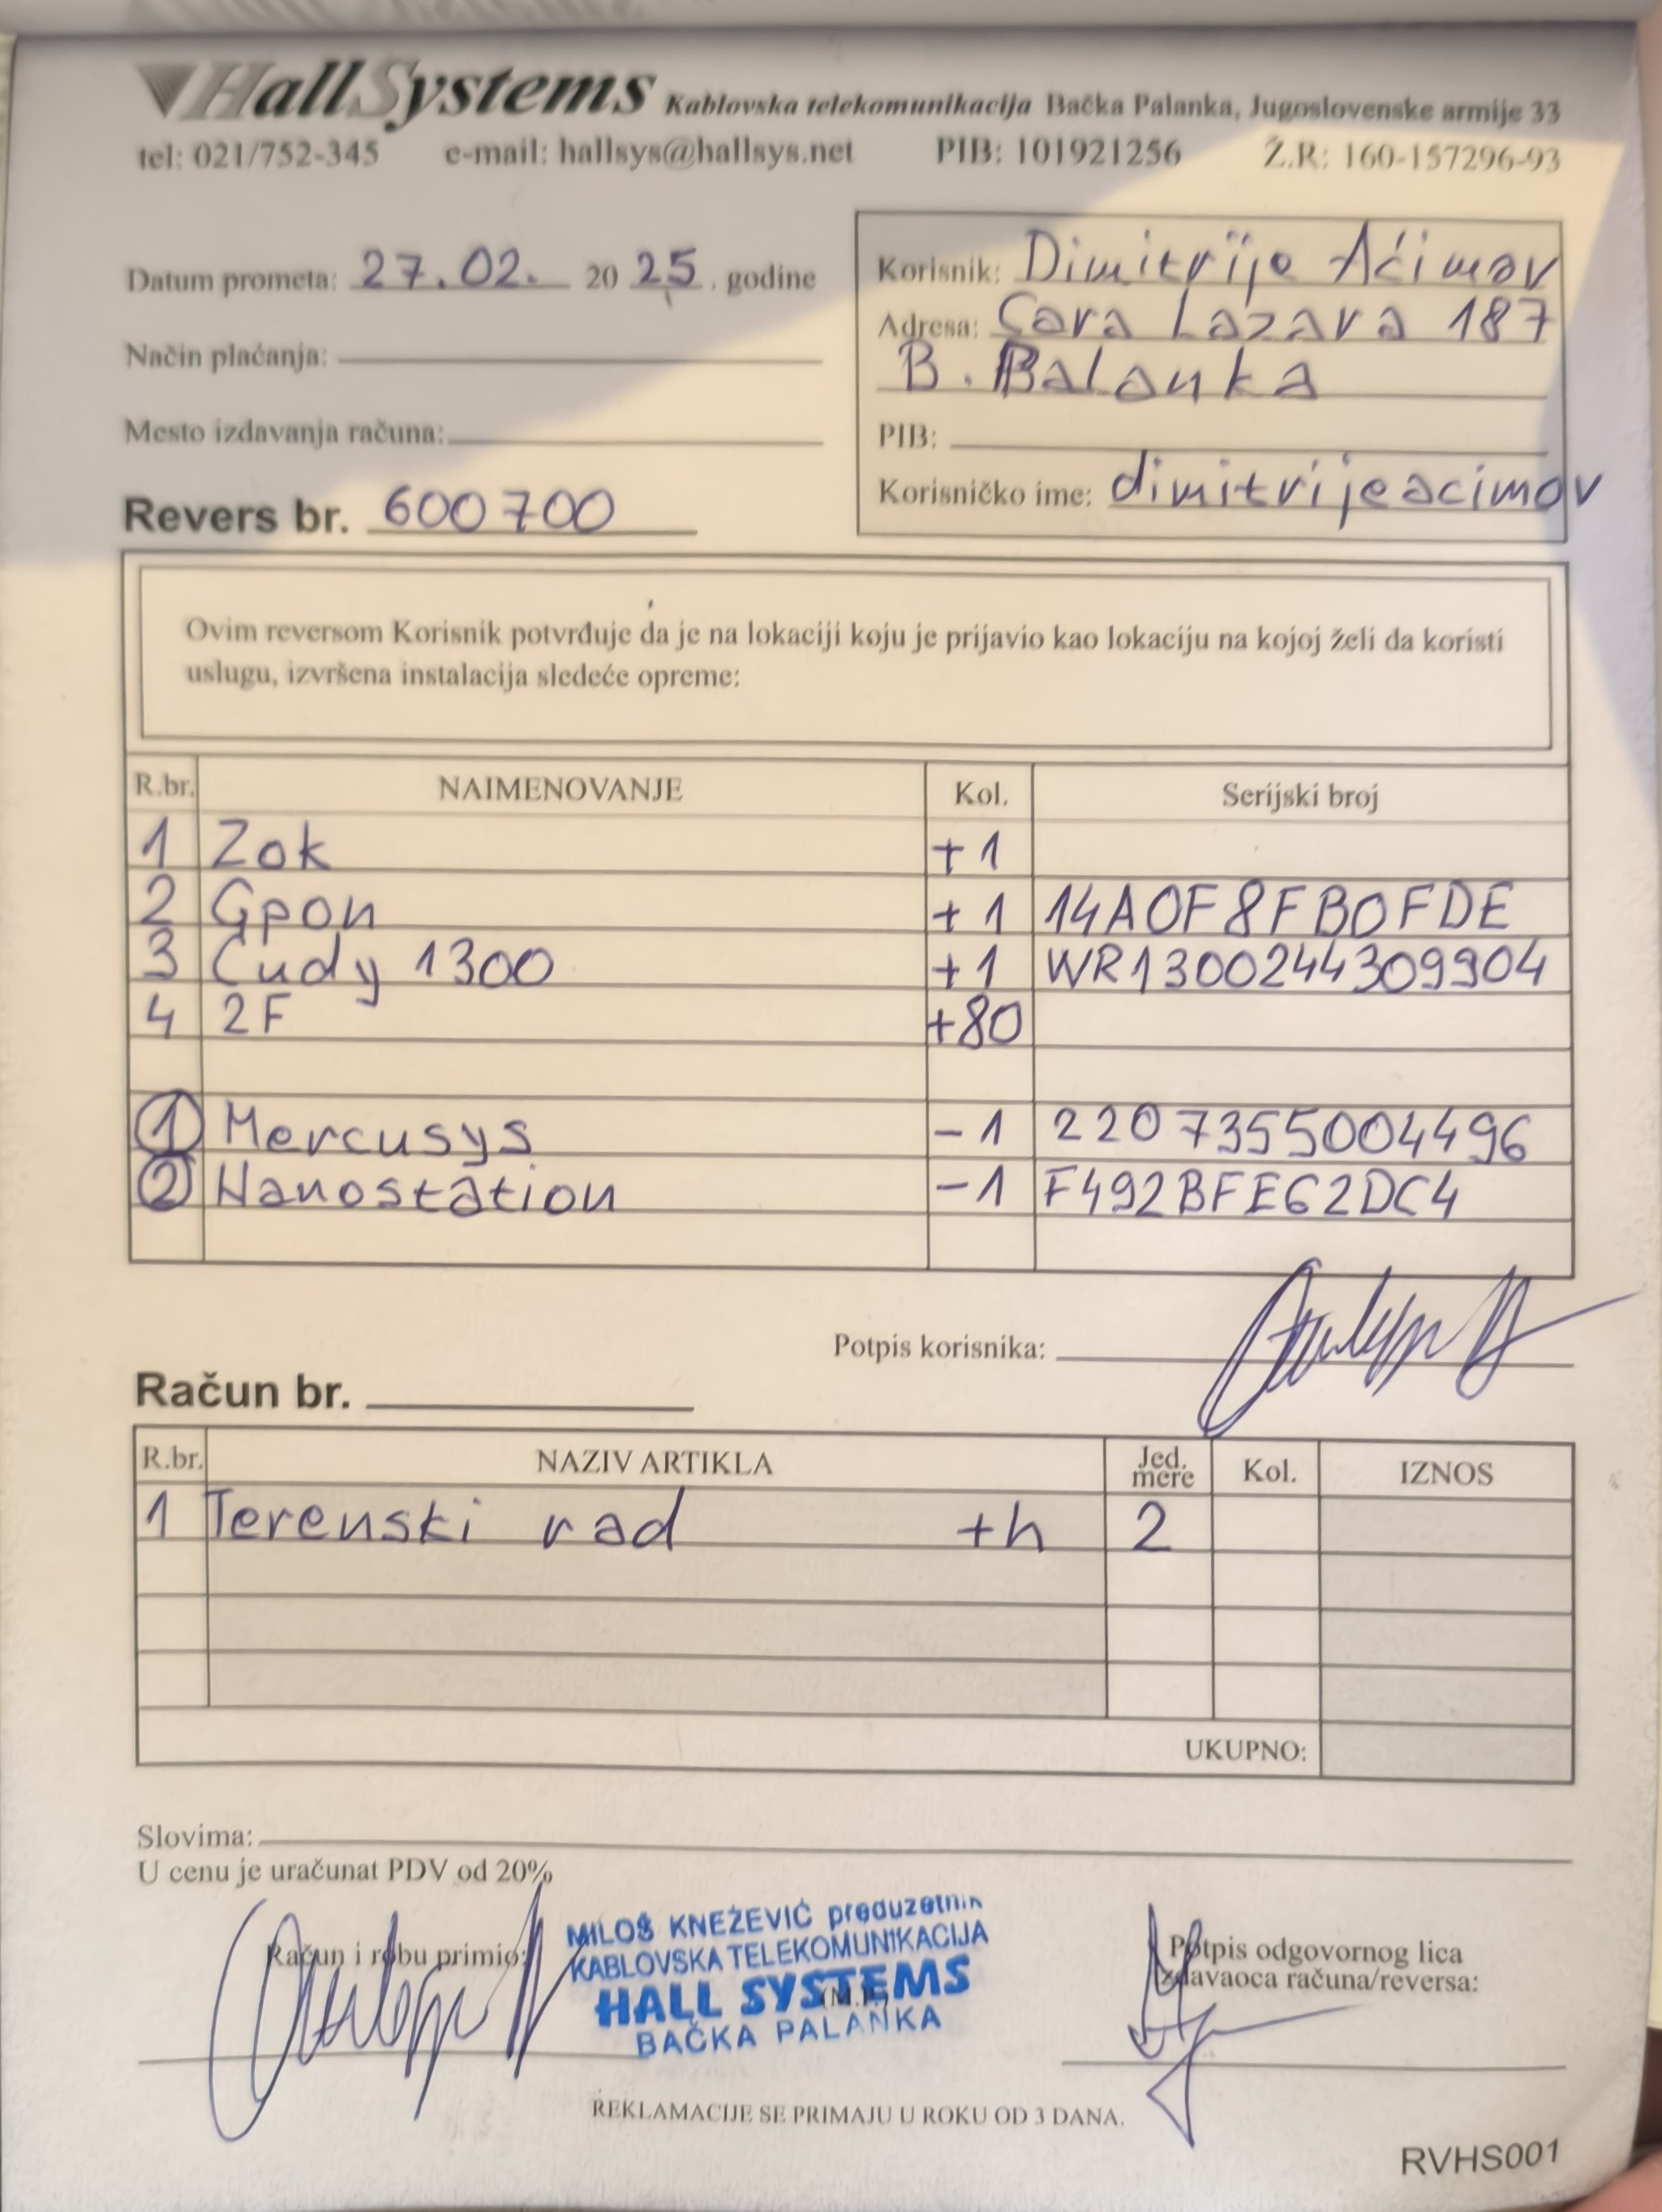 HallSystems Kablovska telekomunikacija Bačka Palanka, Jugoslovenske armije 33
tel: 021/752-345 e-mail: hallsys@hallsys.net PIB: 101921256 Ž.R: 160-157296-93
Datum prometa: 27.02. 2025. godine
Način plaćanja:
Mesto izdavanja računa:
Revers br. 600700
Korisnik: Dimitrije Aćimov
Adresa: Cara Lazara 187
B. Balanka
PIB:
Korisničko ime: dimitrijeacimov
Ovim reversom Korisnik potvrđuje da je na lokaciji koju je prijavio kao lokaciju na kojoj želi da koristi
uslugu, izvršena instalacija sledeće opreme:
R.br. NAIMENOVANJE Kol. Serijski broj
1 Zok +1
2 Gpon +1 14A0F8FB0FDE
3 Cudy 1300 +1 WR1300244309904
4 2F +80
1 Mercusys -1 2207355004496
2 Nanostation -1 F492BFE62DC4
Potpis korisnika:
Račun br.
R.br. NAZIV ARTIKLA Jed. mere Kol. IZNOS
1 Terenski rad +h 2
UKUPNO:
Slovima:
U cenu je uračunat PDV od 20%
Račun i robu primio:
MILOŠ KNEŽEVIĆ preduzetnik
KABLOVSKA TELEKOMUNIKACIJA
HALL SYSTEMS
(M.P.)
BAČKA PALANKA
Potpis odgovornog lica
izdavaoca računa/reversa:
REKLAMACIJE SE PRIMAJU U ROKU OD 3 DANA.
RVHS001